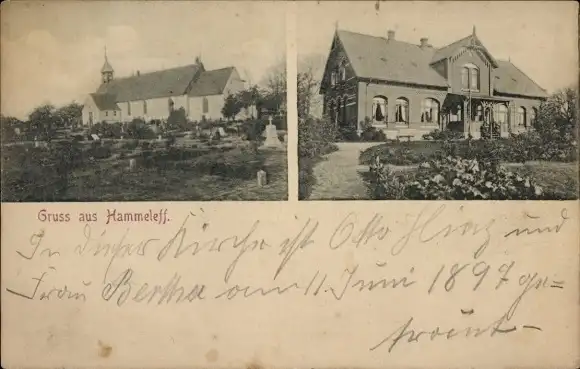 Gruss aus Hammeleff.
In dieser Kirche ist Otto Hinz und
Frau Bertha am 11. Juni 1897 ge-
traut-